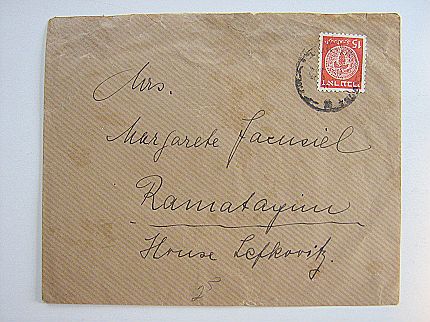 15
ISRAEL
Mrs.
Margarete Jacusiel
Ramatayim
House Lefkovitz.
25